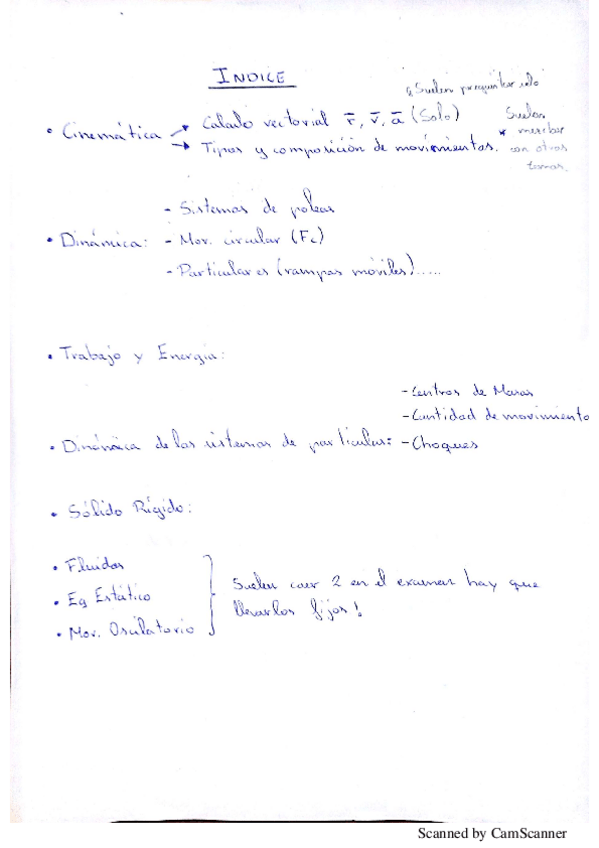 INDICE
Suelen preguntar solo
• Cinemática → Calculo vectorial r̄, v̄, ā (Solo)
→ Tipos y composición de movimientos.
Suelen
* mezclar
con otros
temas.
- Sistemas de poleas
• Dinámica: - Mov. circular (Fc)
- Particulares (rampas móviles).....
• Trabajo y Energia:
- Centros de Masas
- Cantidad de movimiento
• Dinámica de los sistemas de particulas: - Choques
• Sólido Rígido:
• Fluidos
• Eq Estático
• Mov. Oscilatorio
Suelen caer 2 en el examen hay que
llevarlos fijos!
Scanned by CamScanner